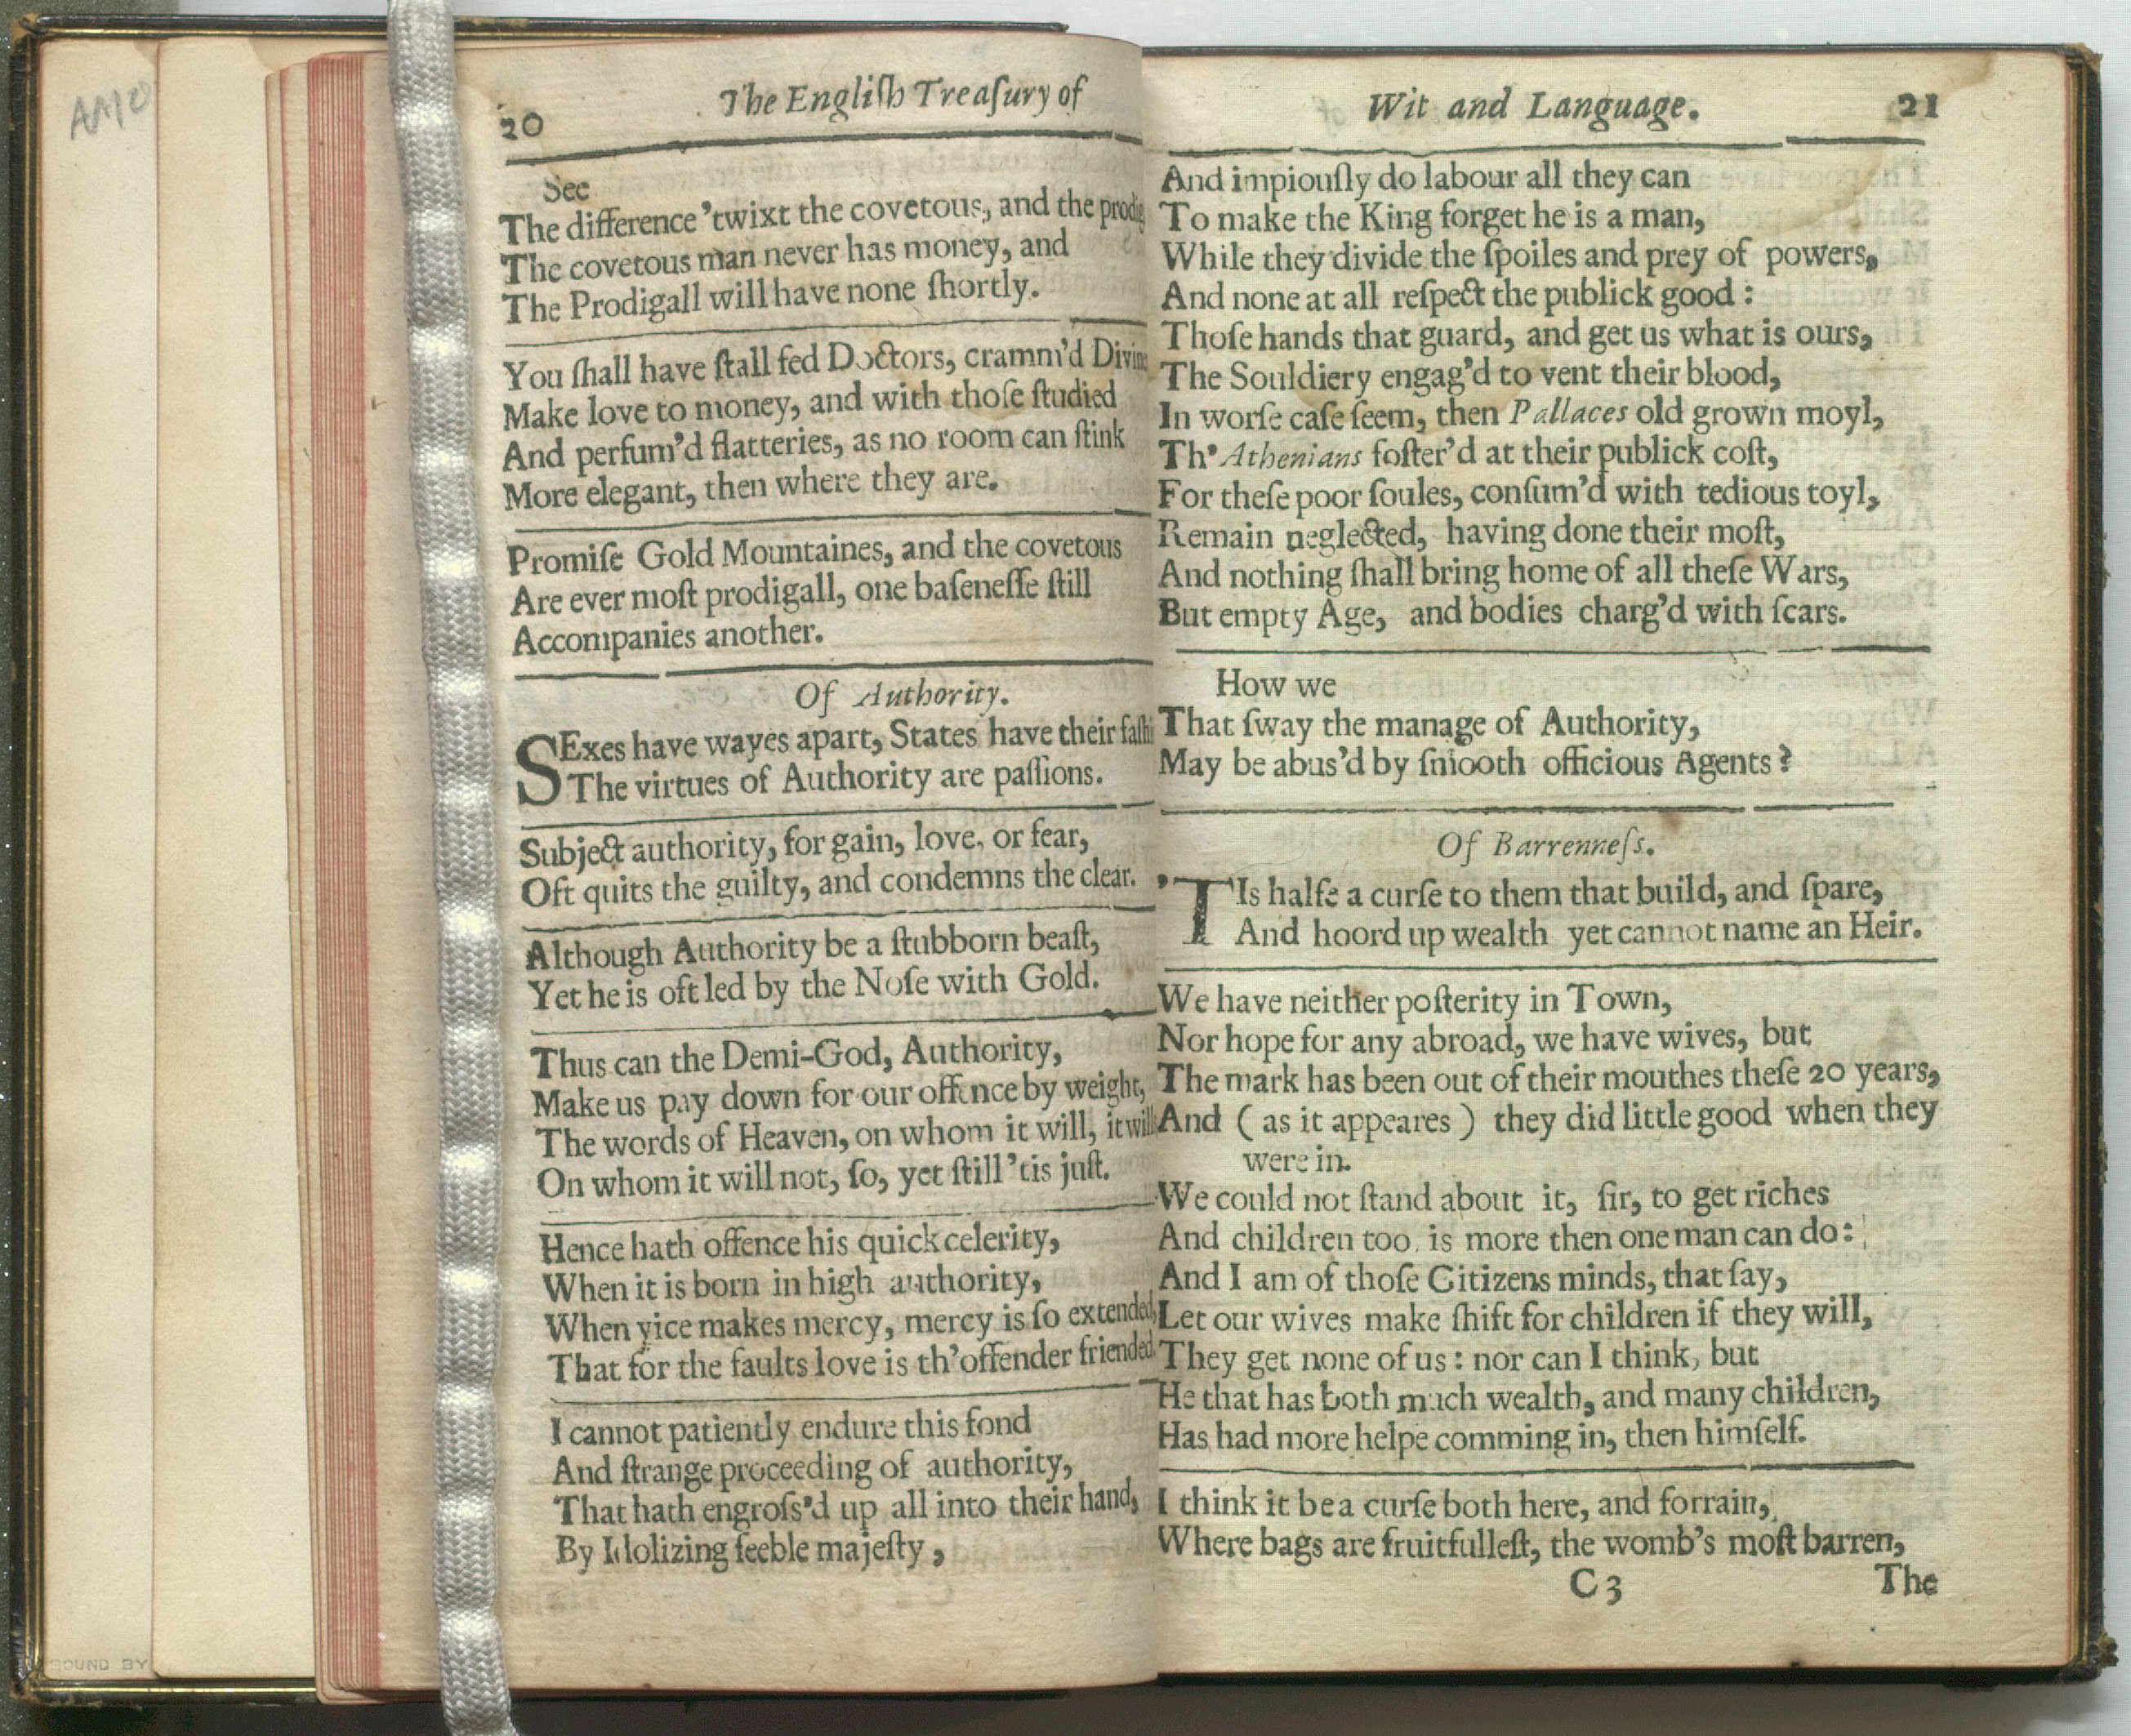 AMO
BOUND BY
20 The Engliſh Treaſury of
See
The difference 'twixt the covetous, and the
The covetous man never has money, and
The Prodigall will have none ſhortly.
You ſhall have ſtall fed Doctors, cramm'd
Make love to money, and with thoſe ſtudied
And perfum'd flatteries, as no room can ſtink
More elegant, then where they are.
Promiſe Gold Mountaines, and the covetous
Are ever moſt prodigall, one baſeneſſe ſtill
Accompanies another.
Of Authority.
SExes have wayes apart, States have their
The virtues of Authority are paſſions.
Subject authority, for gain, love, or fear,
Oft quits the guilty, and condemns the clear.
Although Authority be a ſtubborn beaſt,
Yet he is oft led by the Noſe with Gold.
Thus can the Demi-God, Authority,
Make us pay down for our offence by weight,
The words of Heaven, on whom it will, it will
On whom it will not, ſo, yet ſtill 'tis juſt.
Hence hath offence his quick celerity,
When it is born in high authority,
When vice makes mercy, mercy is ſo extended,
That for the faults love is th'offender friended.
I cannot patiently endure this fond
And ſtrange proceeding of authority,
That hath engroſs'd up all into their hand,
By Idolizing feeble majeſty,
Wit and Language. 21
And impiouſly do labour all they can
To make the King forget he is a man,
While they divide the ſpoiles and prey of powers,
And none at all reſpect the publick good:
Thoſe hands that guard, and get us what is ours,
The Souldiery engag'd to vent their blood,
In worſe caſe ſeem, then Pallaces old grown moyl,
Th' Athenians foſter'd at their publick coſt,
For theſe poor ſoules, conſum'd with tedious toyl,
Remain neglected, having done their moſt,
And nothing ſhall bring home of all theſe Wars,
But empty Age, and bodies charg'd with ſcars.
How we
That ſway the manage of Authority,
May be abus'd by ſmooth officious Agents?
Of Barrenneſs.
'TIs halfe a curſe to them that build, and ſpare,
And hoord up wealth yet cannot name an Heir.
We have neither poſterity in Town,
Nor hope for any abroad, we have wives, but
The mark has been out of their mouthes theſe 20 years,
And ( as it appeares ) they did little good when they
were in.
We could not ſtand about it, ſir, to get riches
And children too, is more then one man can do:
And I am of thoſe Gitizens minds, that ſay,
Let our wives make ſhift for children if they will,
They get none of us: nor can I think, but
He that has both much wealth, and many children,
Has had more helpe comming in, then himſelf.
I think it be a curſe both here, and forrain,
Where bags are fruitfulleſt, the womb's moſt barren,
C 3 The